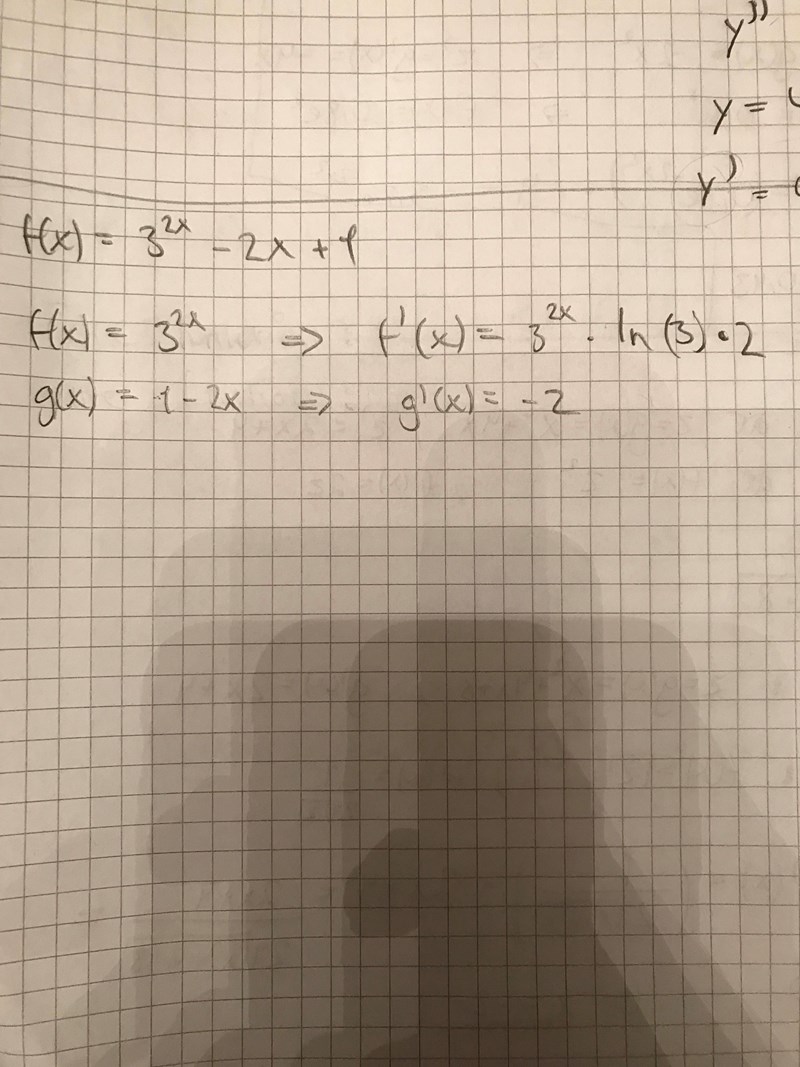 y''
y =
y' =
f(x) = 3^{2x} - 2x + 1
f(x) = 3^{2x} => f'(x) = 3^{2x} · ln(3) · 2
g(x) = 1 - 2x => g'(x) = -2